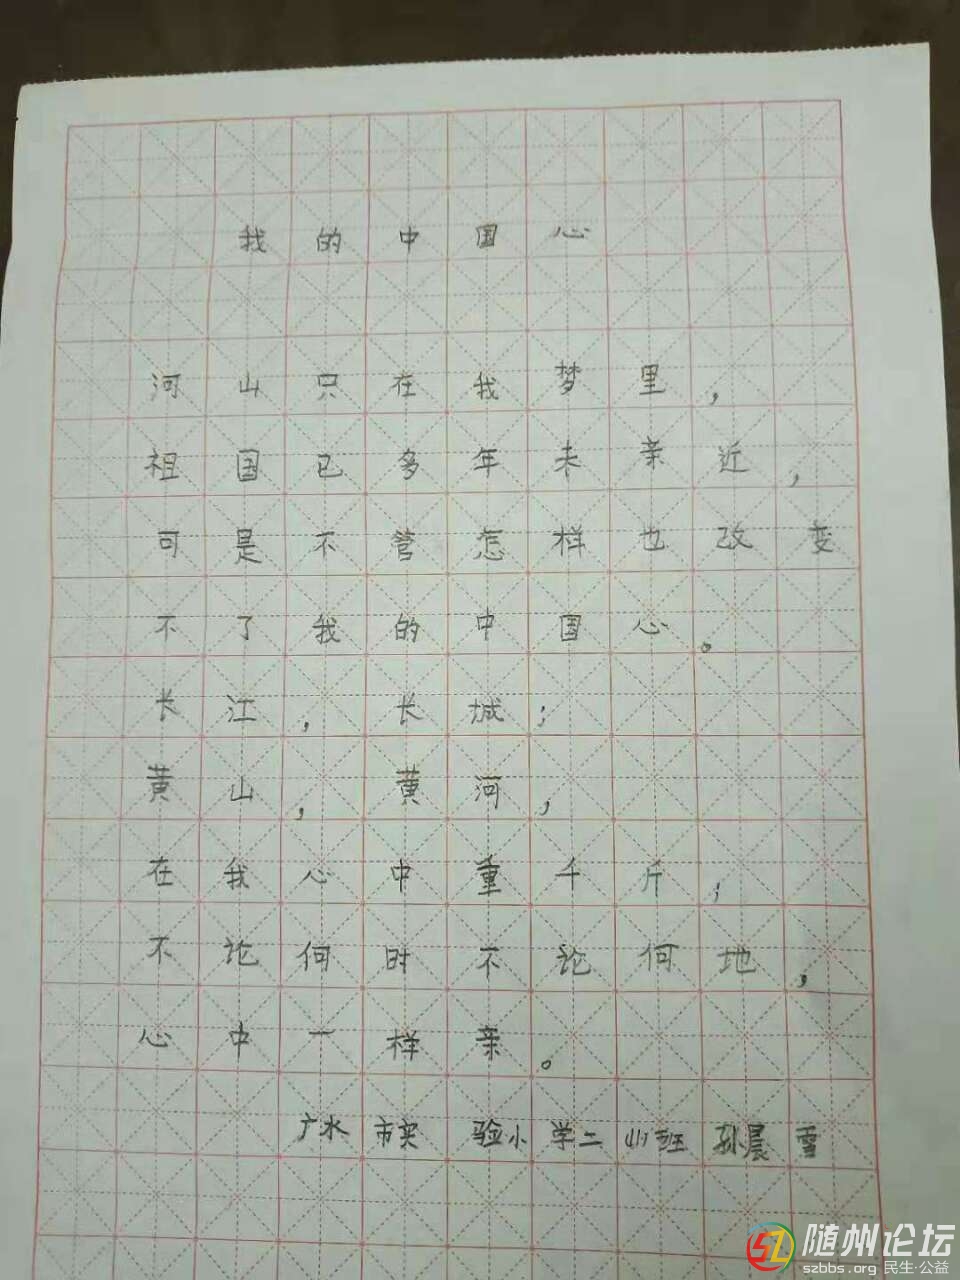 我的中国心
河山只在我梦里，
祖国已多年未亲近，
可是不管怎样也改变
不了我的中国心。
长江，长城；
黄山，黄河，
在我心中重千斤；
不论何时不论何地，
心中一样亲。
广水市实验小学二(1)班孙晨雪
随州论坛
szbbs.org 民生·公益